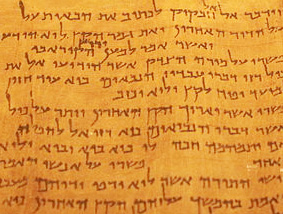 וידבר אל חבקוק לכתוב את הבאות על
הדור האחרון ואת גמר הקץ לוא הודע
ואשר אמר למען ירוץ הקורא בו
פשרו על מורה הצדק אשר הודיעו אל את
רזי דברי עבדיו הנבאים כיא עוד חזון
למועד יפיח לקץ ולוא יכזב
פשרו אשר יארוך הקץ האחרון ויתר על כול
אשר דברו הנביאים כיא רזי אל להפלה
אם יתמהמה חכה לו כיא בוא יבוא ולוא
יאחר פשרו על אנשי האמת
עושי התורה אשר לוא ירפו ידיהם
האמת בהמשך עליהם הקץ האחרון כיא